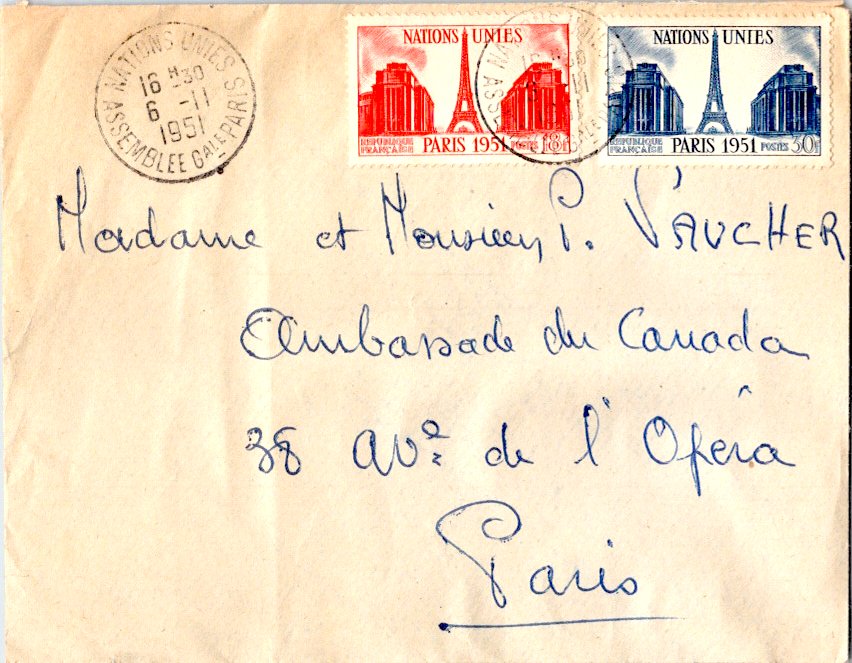 NATIONS UNIES
16 H 30
6 - 11
1951
ASSEMBLEE GALE PARIS
NATIONS UNIES
REPUBLIQUE
FRANÇAISE
PARIS 1951 POSTES 18F
NATIONS UNIES
REPUBLIQUE
FRANÇAISE
PARIS 1951 POSTES 30F
Madame et Monsieur P. VAUCHER
Ambassade du Canada
38 ave de l'Opéra
Paris